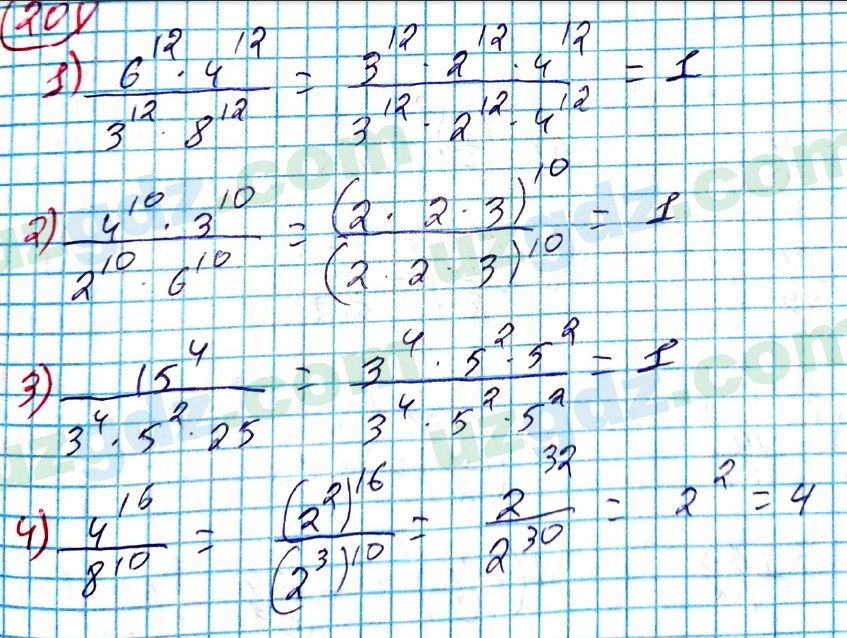 201
1) 6^12 · 4^12 / 3^12 · 8^12 = 3^12 · 2^12 · 4^12 / 3^12 · 2^12 · 4^12 = 1
2) 4^10 · 3^10 / 2^10 · 6^10 = (2 · 2 · 3)^10 / (2 · 2 · 3)^10 = 1
3) 15^4 / 3^4 · 5^2 · 25 = 3^4 · 5^2 · 5^2 / 3^4 · 5^2 · 5^2 = 1
4) 4^16 / 8^10 = (2^2)^16 / (2^3)^10 = 2^32 / 2^30 = 2^2 = 4
uzgdz.com
uzgdz.com
uzgdz.com
uzgdz.com